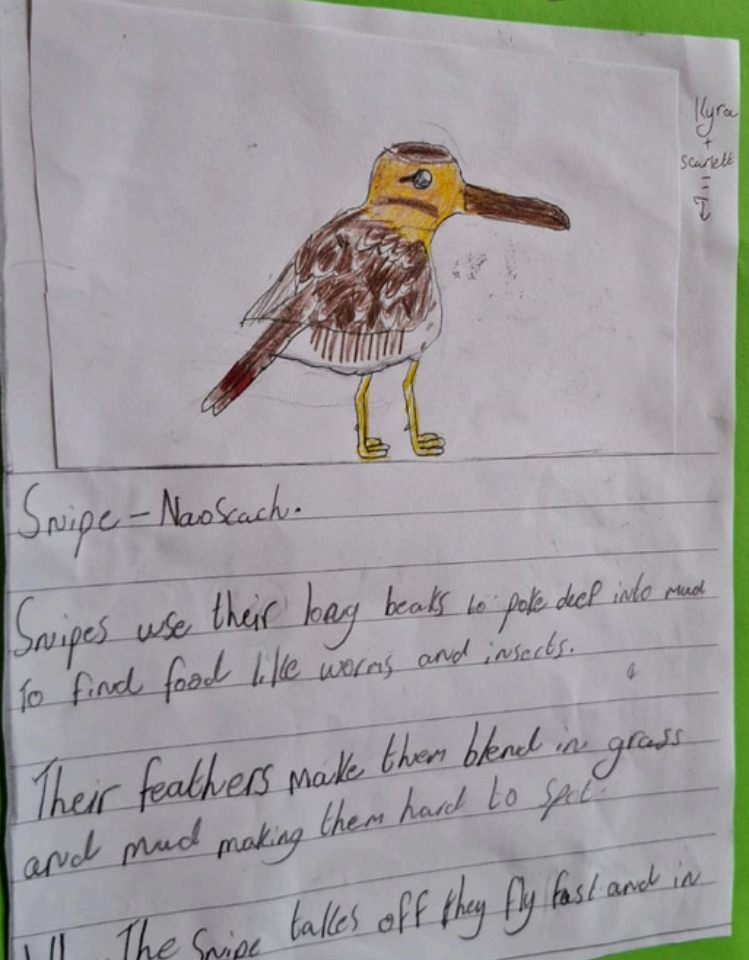 Kyra
+
Scarlett
Snipe - Naoscach.
Snipes use their long beaks to poke deep into mud
to find food like worms and insects.
Their feathers make them blend in grass
and mud making them hard to spot.
The Snipe takes off they fly fast and in